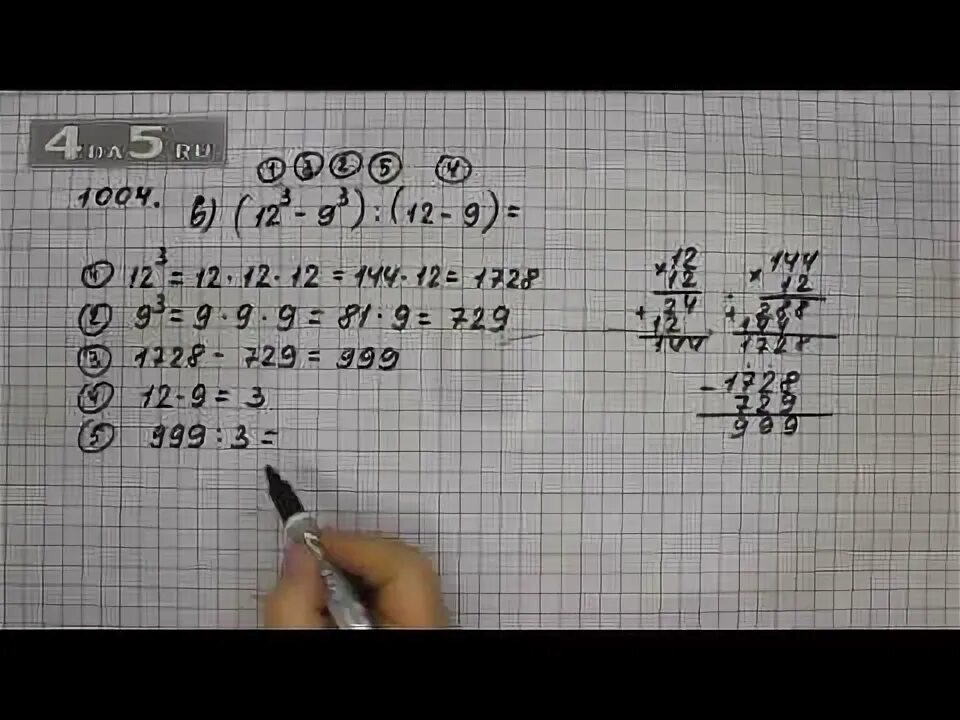 4 на 5 RU
① ③ ② ⑤ ④
1004. в) (12³ - 9³) : (12 - 9) =
① 12³ = 12 · 12 · 12 = 144 · 12 = 1728
② 9³ = 9 · 9 · 9 = 81 · 9 = 729
③ 1728 - 729 = 999
④ 12 - 9 = 3
⑤ 999 : 3 =
12
× 12
+ 24
12
144
144
× 12
+ 288
144
1728
- 1728
729
999